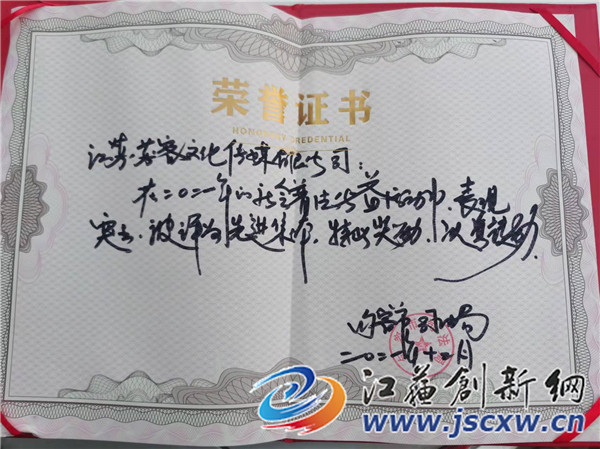 荣誉证书
HONORARY CREDENTIAL
江苏苏客文化传媒有限公司：
在二〇二一年的社会普法公益活动中，表现
突出，被评为先进集体，特此奖励，以资鼓励。
市司法局
二〇二一年十二月
江蘇創新網
www.jscxw.cn